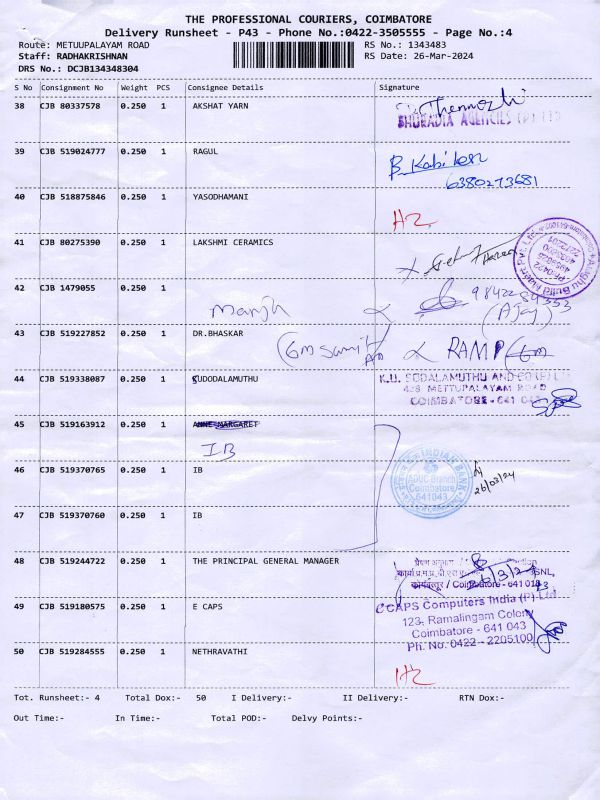 THE PROFESSIONAL COURIERS, COIMBATORE
Delivery Runsheet - P43 - Phone No.:0422-3505555 - Page No.:4
Route: METUUPALAYAM ROAD RS No.: 1343483
Staff: RADHAKRISHNAN RS Date: 26-Mar-2024
DRS No.: DCJB134348304
S No Consignment No Weight PCS Consignee Details Signature
38 CJB 80337578 0.250 1 AKSHAT YARN
39 CJB 519024777 0.250 1 RAGUL
B Kabilesh
6380273681
40 CJB 518875846 0.250 1 YASODHAMANI
41 CJB 80275390 0.250 1 LAKSHMI CERAMICS
42 CJB 1479055 0.250 1
(Ajay)
43 CJB 519227852 0.250 1 DR.BHASKAR
RAMP
44 CJB 519338087 0.250 1 SUDODALAMUTHU
K.U. SODALAMUTHU AND CO (P) LTD
4/8 METTUPALAYAM ROAD
COIMBATORE - 641 043
45 CJB 519163912 0.250 1 ANNE MARGARET
IB
46 CJB 519370765 0.250 1 IB
INDIAN BANK
ADUC Branch
Coimbatore
641043
26/03/24
47 CJB 519370760 0.250 1 IB
48 CJB 519244722 0.250 1 THE PRINCIPAL GENERAL MANAGER
BSNL,
/ Coimbatore - 641 043
49 CJB 519180575 0.250 1 E CAPS
CAPS Computers India (P) Ltd
123, Ramalingam Colony
Coimbatore - 641 043
Ph. No. 0422 - 2205100
50 CJB 519284555 0.250 1 NETHRAVATHI
Tot. Runsheet:- 4 Total Dox:- 50 I Delivery:- II Delivery:- RTN Dox:-
Out Time:- In Time:- Total POD:- Delvy Points:-